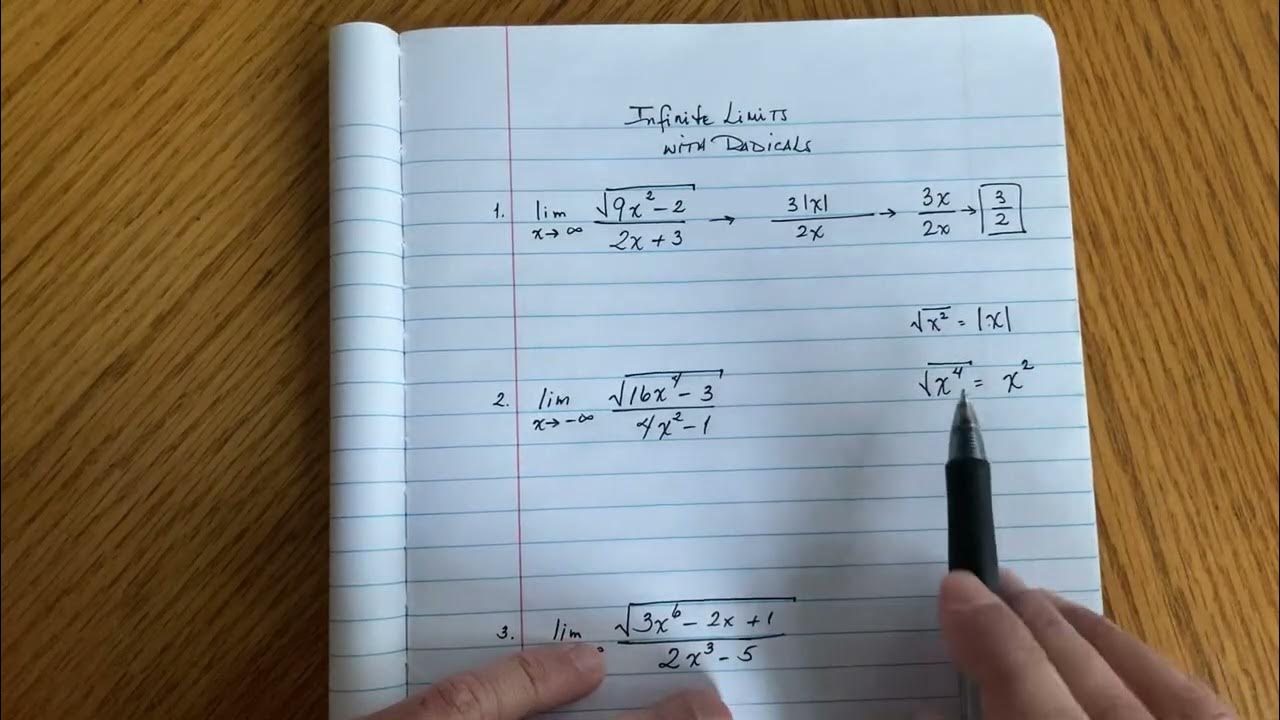 Infinite Limits
with Radicals
1. lim x→∞ √(9x²-2) / (2x+3) → 3|x| / 2x → 3x / 2x → 3/2
√x² = |x|
√x⁴ = x²
2. lim x→-∞ √(16x⁴-3) / (4x²-1)
3. lim √(3x⁶-2x+1) / (2x³-5)